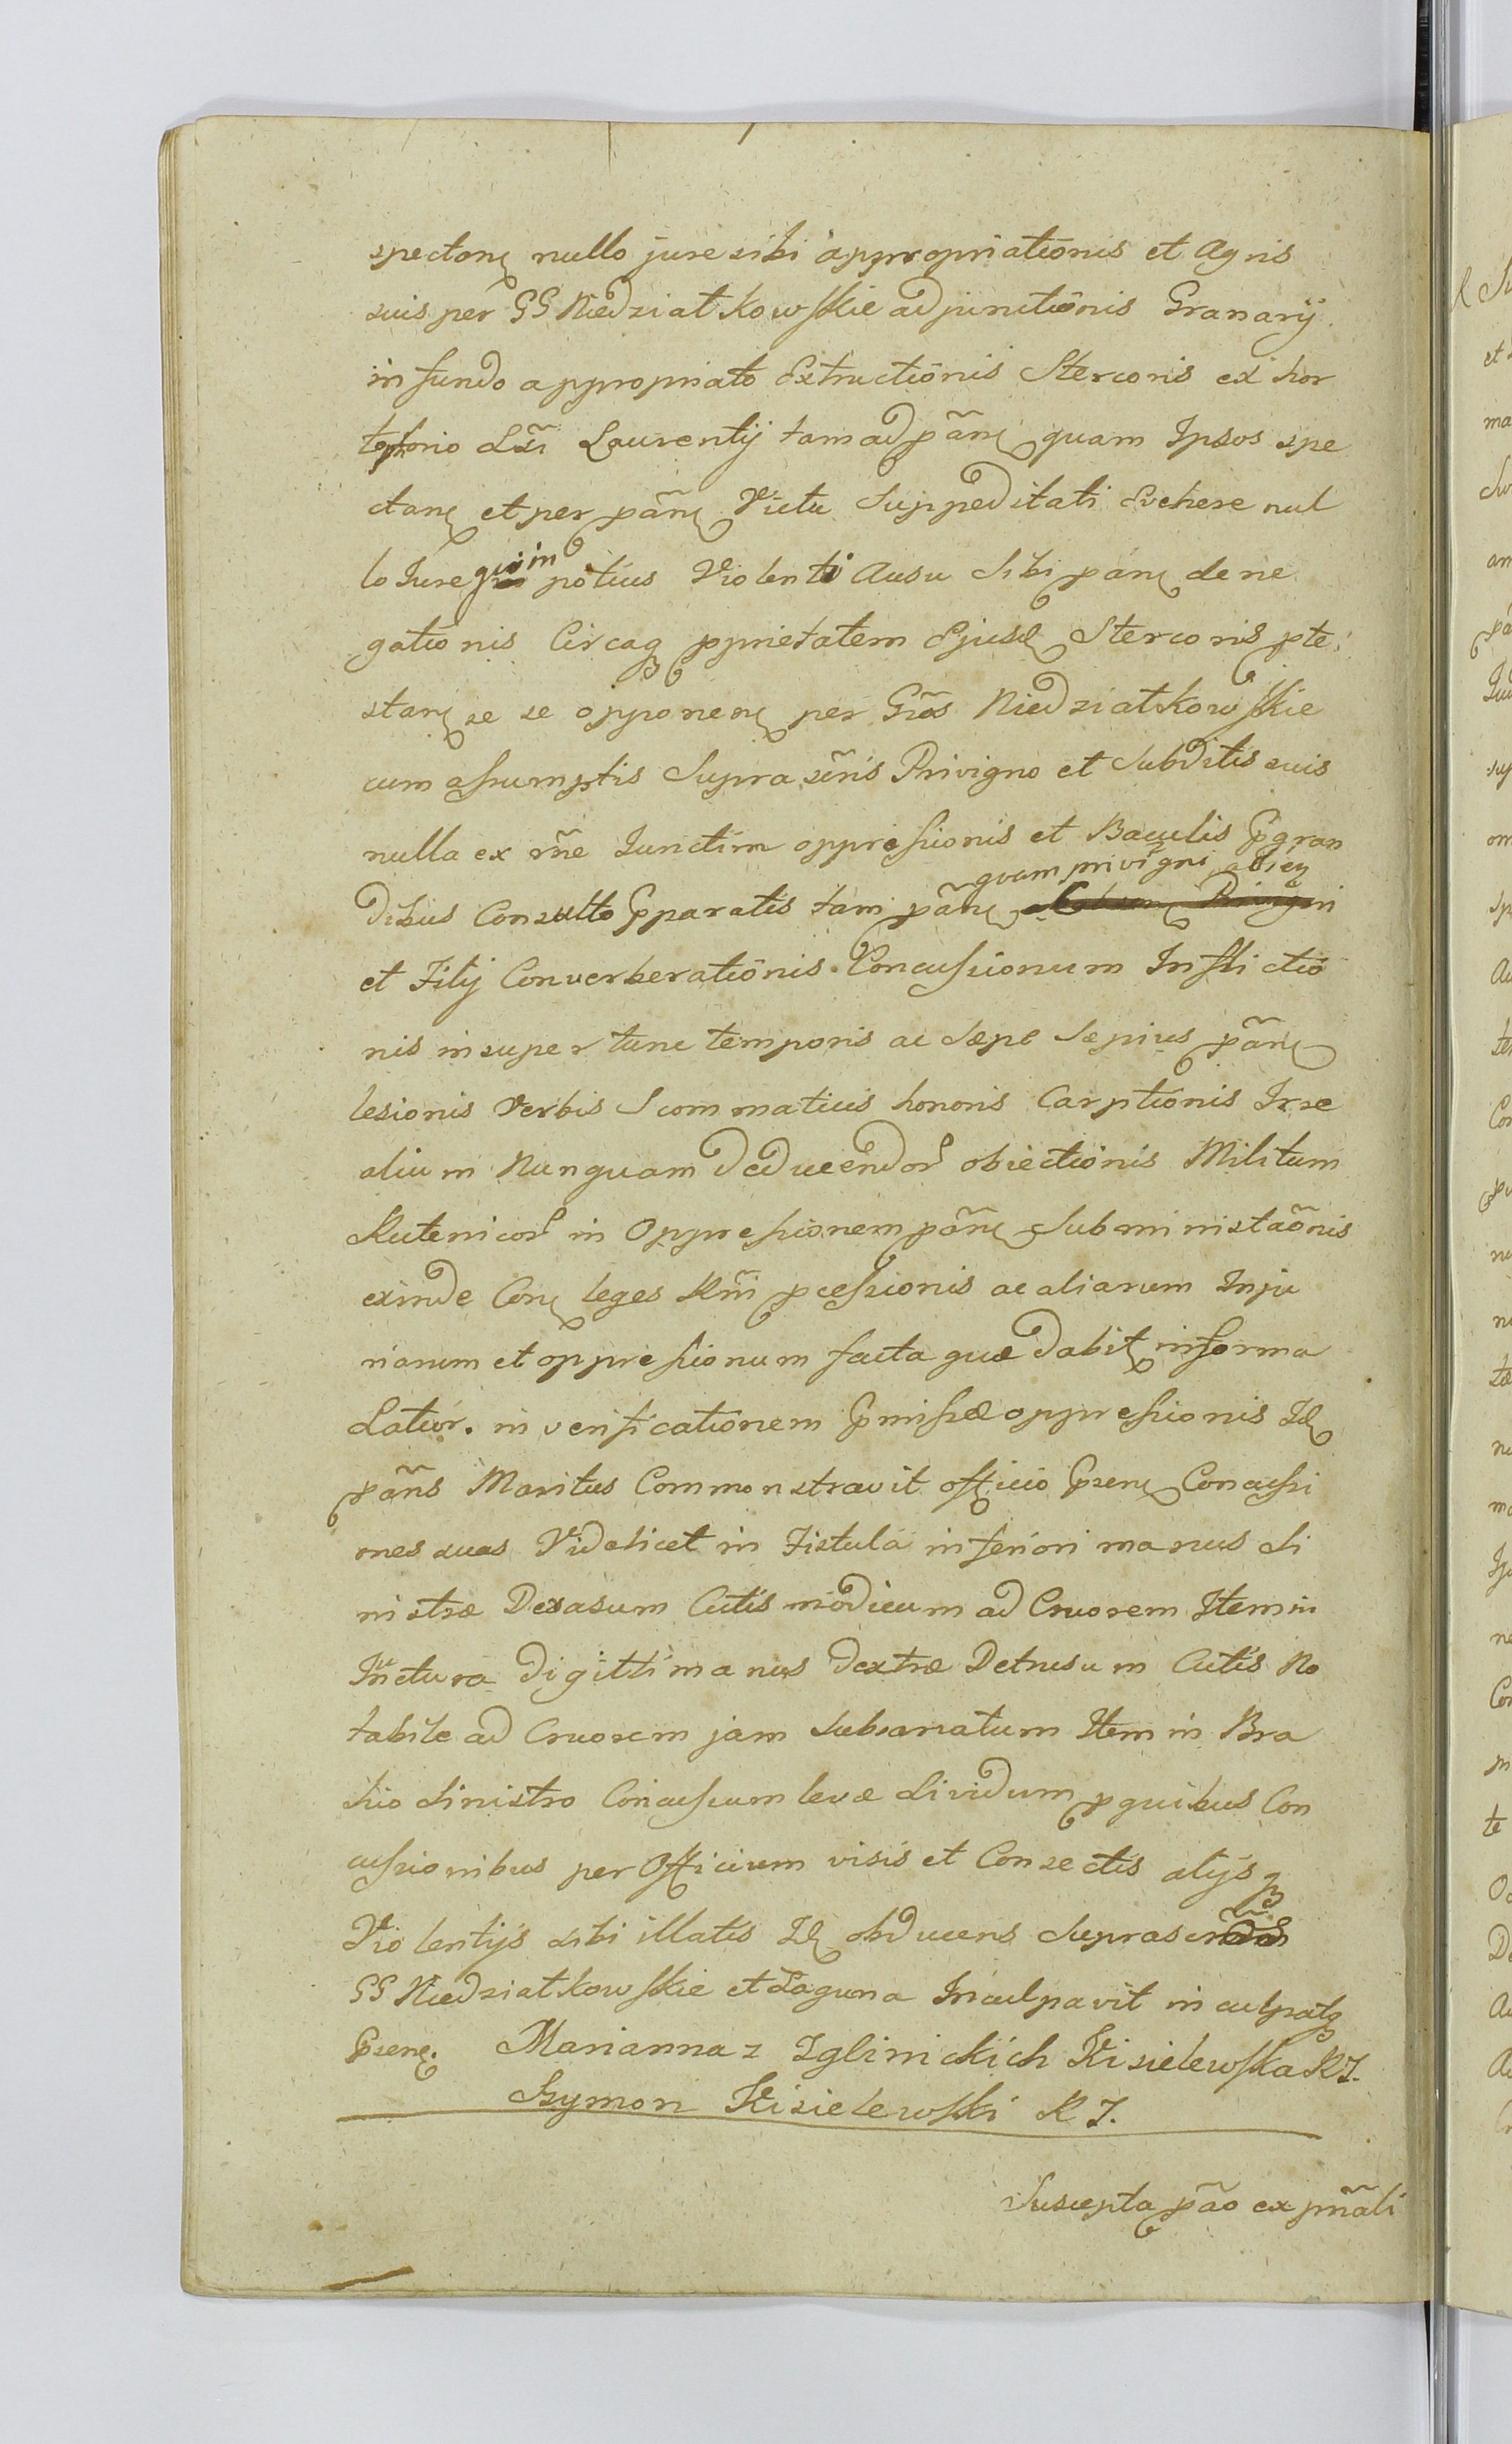 spectan nullo jure sibi appropriationis et Agris
suis per GG Niedziałkowskie adjunctionis Granarij
in fundo appropriato Extructionis Stercoris ex hor
Laurentij tam ad pãn quam Ipsos spe
ctan et per pãn Victu Suppeditati Evehere nul
lo Jure quin potius Violenti Ausu Sibi pãn dene
gationis Circaq pprietatem Ejusd Stercoris pte
stan se se opponen per Grõs Niedziałkowskie
cum assumptis Supra scris Privigno et Subditis suis
nulla ex rñe Iunctim oppressionis et Baculis pgran
quam privigni absen
dibus Consulto pparatis tam pãn
et Filij Converberationis Concussionum Inflictio
nis insuper tunc temporis ac Sæpe Sæpius pãn
lesionis Verbis Scommaticis honoris Carptionis Irse
alium Nunquam deducendor obiectionis Militum
Rutenicor in Oppressionem pãn Subministrãonis
exinde Con leges Rñi pcessionis ac aliarum Inju
riarum et oppressionum facta quæ dabit in forma
Latior. in verificationem pmissæ oppressionis Id
pãns Maritus Commonstravit officio psen Concussi
ones suas Videlicet in Fistula inferiori manus Si
nistræ Derasum Cutis modicum ad Cruorem Item in
Iunctura digitti manus dextræ Detrusum Cutis No
tabile ad Cruorem jam Subsanatum Item in Bra
chio Sinistro Concussum levæ Lividum p quibus Con
cussionibus per Officium visis et Conspectis alijsq
Violentijs sibi illatis Id obducens
GG Niedziałkowskie et Laguna Inculpavit inculpatq
psen. Marianna z Zglinickich Kisielewska RJ.
Szymon Kisielewski RJ.
Suscepta pão ex pñali